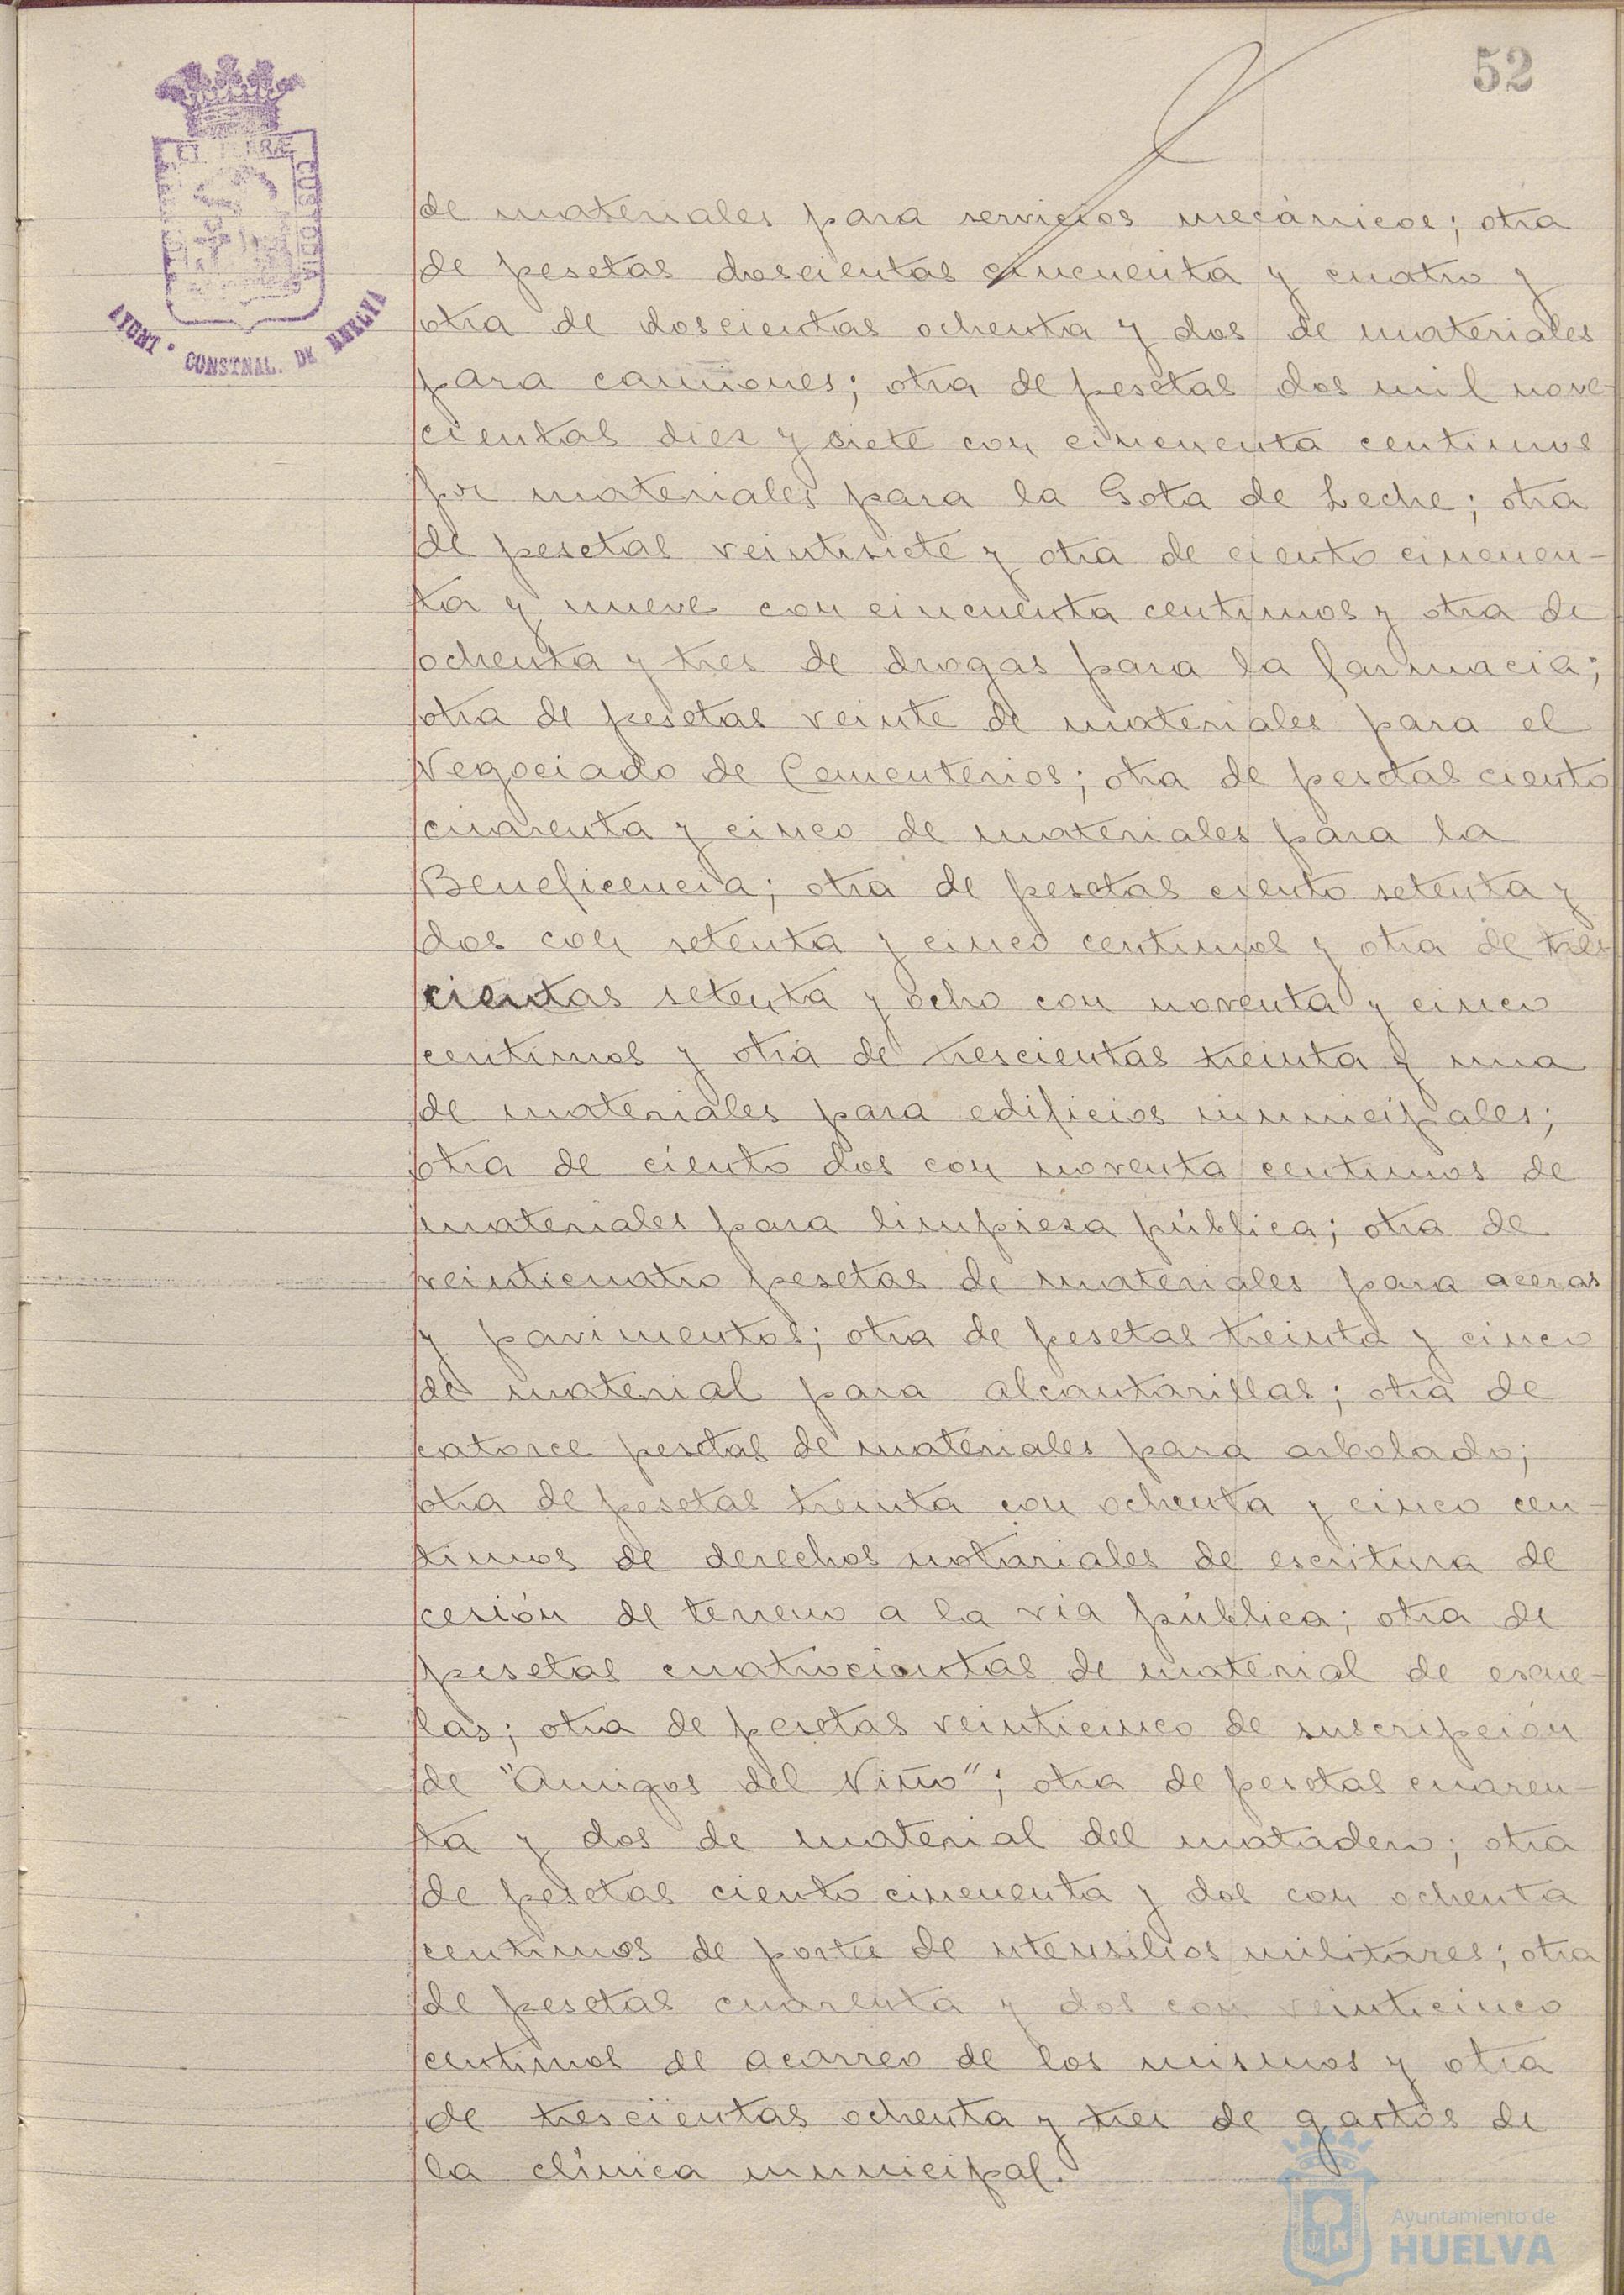 52
ET TERRÆ
CUSTODIA
AYUNT · CONSTNAL. DE HUELVA
de materiales para servicios mecánicos; otra
de pesetas doscientas cincuenta y cuatro y
otra de doscientas ochenta y dos de materiales
para camiones; otra de pesetas dos mil nove-
cientas diez y siete con cincuenta centimos
por materiales para la Gota de Leche; otra
de pesetas veintisiete y otra de ciento cincuen-
ta y nueve con cincuenta centimos y otra de
ochenta y tres de drogas para la farmacia;
otra de pesetas veinte de materiales para el
Negociado de Cementerios; otra de pesetas ciento
cuarenta y cinco de materiales para la
Beneficencia; otra de pesetas ciento setenta y
dos con setenta y cinco centimos y otra de tres
cientas setenta y ocho con noventa y cinco
centimos y otra de trescientas treinta y una
de materiales para edificios municipales;
otra de ciento dos con noventa centimos de
materiales para limpieza pública; otra de
veinticuatro pesetas de materiales para aceras
y pavimentos; otra de pesetas treinta y cinco
de material para alcantarillas; otra de
catorce pesetas de materiales para arbolado;
otra de pesetas treinta con ochenta y cinco cen-
timos de derechos notariales de escritura de
cesión de terreno a la via pública; otra de
pesetas cuatrocientas de material de escue-
las; otra de pesetas veinticinco de suscripción
de "Amigos del Niño"; otra de pesetas cuaren-
ta y dos de material del matadero; otra
de pesetas ciento cincuenta y dos con ochenta
centimos de porte de utensilios militares; otra
de pesetas cuarenta y dos con veinticinco
centimos de acarreo de los mismos y otra
de trescientas ochenta y tres de gastos de
la clínica municipal.
Ayuntamiento de
HUELVA